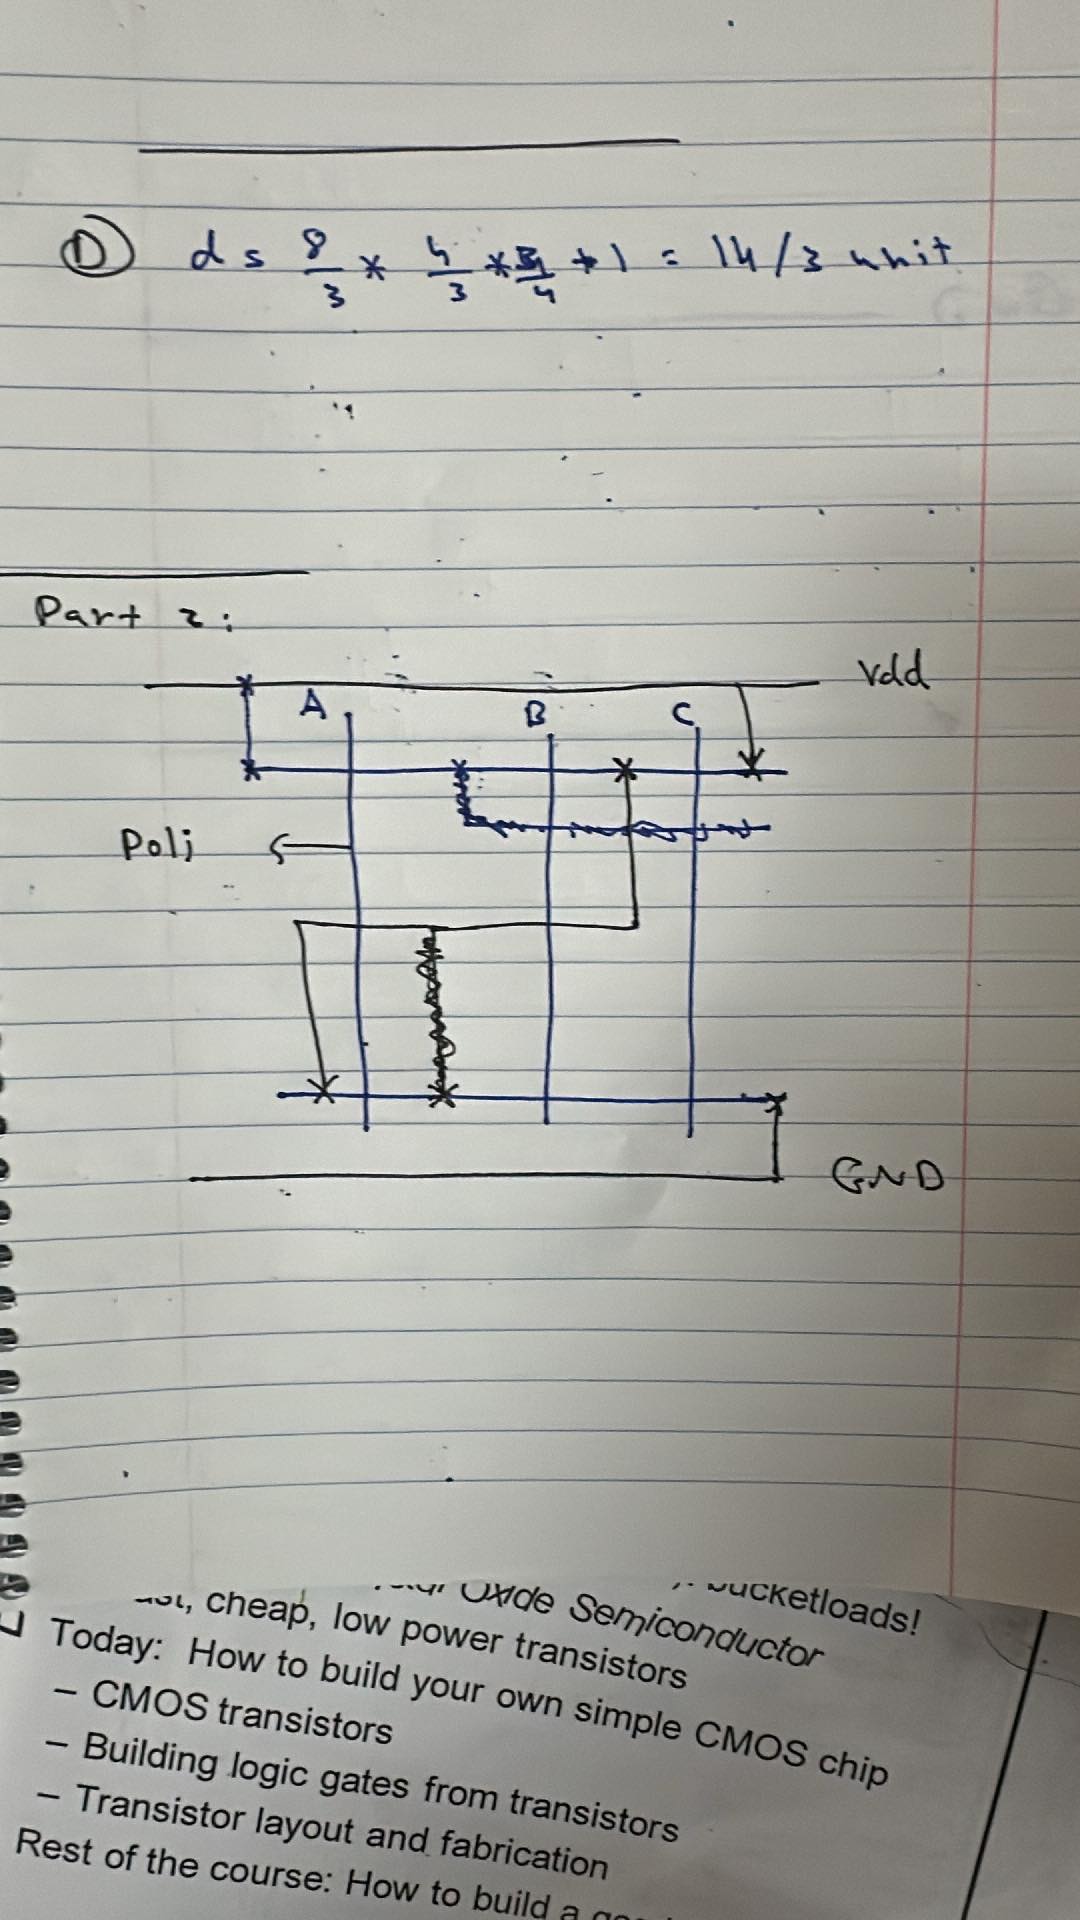 D d = 8/3 * 4/3 * /4 + 1 = 14/3 unit
Part 2:
Vdd
A B C
Poli
GND
bucketloads!
Oxide Semiconductor
, cheap, low power transistors
Today: How to build your own simple CMOS chip
– CMOS transistors
– Building logic gates from transistors
– Transistor layout and fabrication
Rest of the course: How to build a